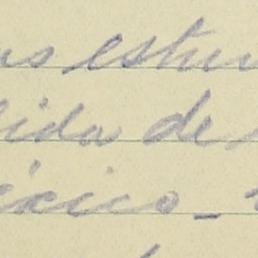 us estu
lida de
éxico -